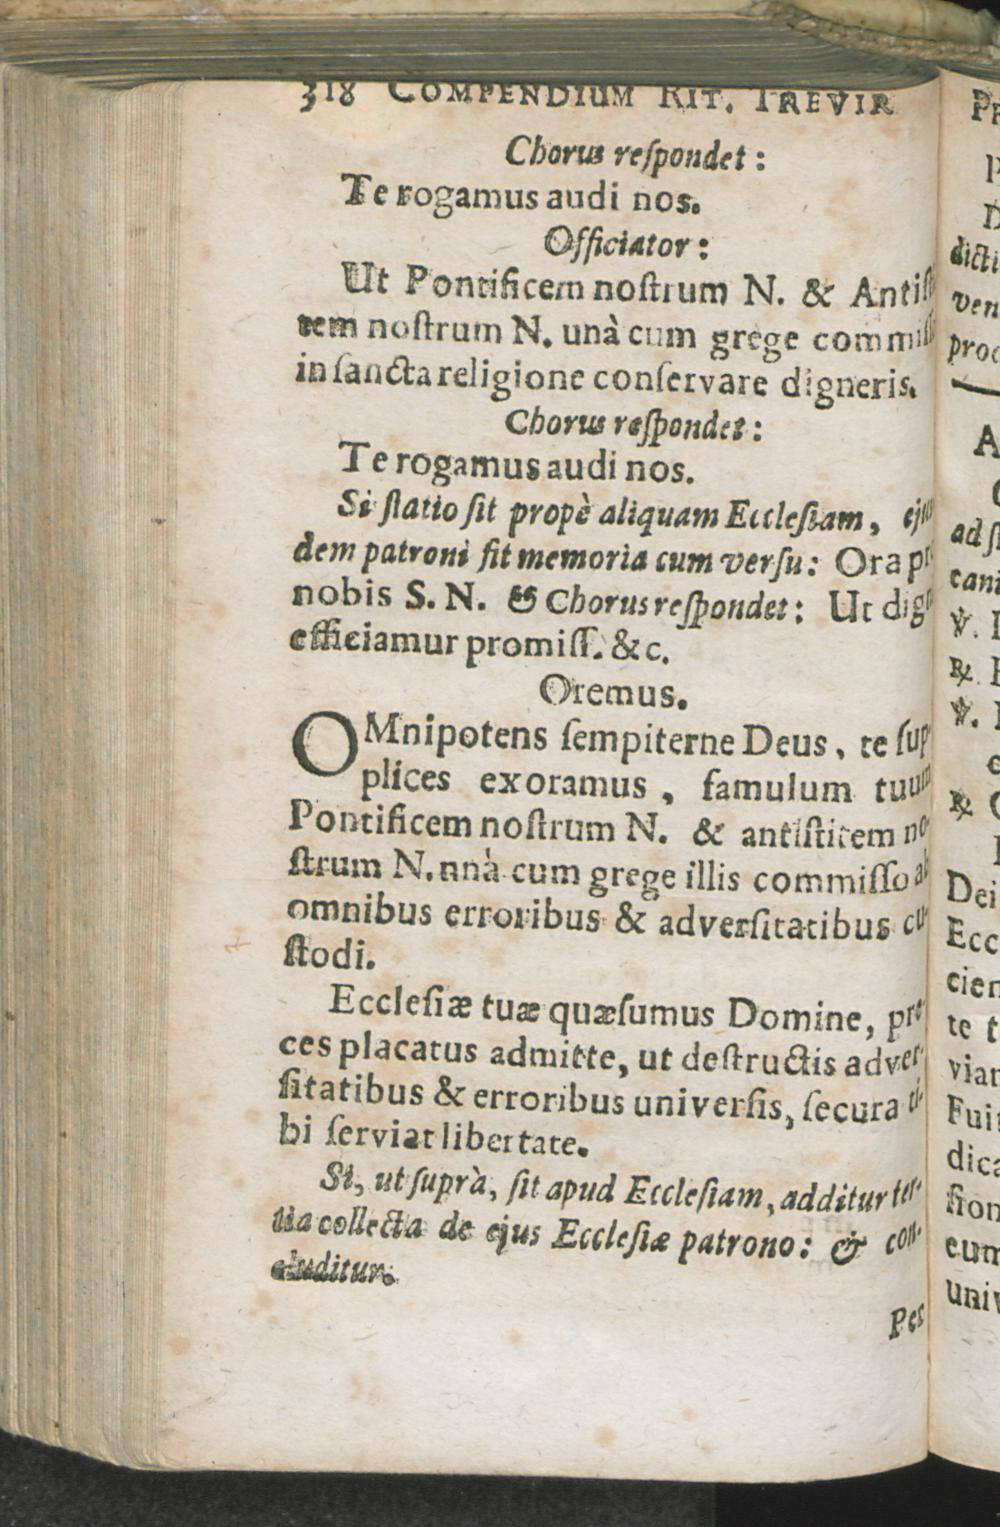 318 COMPENDIUM RIT. TREVIR
Chorus reſpondet:
Te rogamus audi nos.
Officiator:
Ut Pontificem noſtrum N. & Antiſti
tem noſtrum N. unà cum grege commiſſo
in ſancta religione conſervare digneris.
Chorus reſpondet:
Te rogamus audi nos.
Si ſtatio ſit propè aliquam Eccleſiam, ejus
dem patroni fit memoria cum verſu: Ora pro
nobis S. N. & Chorus reſpondet: Ut digni
efficiamur promiſſ. &c.
Oremus.
OMnipotens ſempiterne Deus, te ſup-
plices exoramus, famulum tuum
Pontificem noſtrum N. & antiſtitem no-
ſtrum N. nnà cum grege illis commiſſo ab
omnibus erroribus & adverſitatibus cu-
ſtodi.
Eccleſiæ tuæ quæſumus Domine, pre-
ces placatus admitte, ut deſtructis adver-
ſitatibus & erroribus univerſis, ſecura ti-
bi ſerviat libertate.
Si, ut ſuprà, ſit apud Eccleſiam, additur ter-
tia collecta de ejus Eccleſiæ patrono: & con-
cluditur.
Per
P
D
dicti
ven
proc
A
ad ſ
cani
℣.
℟.
℣.
℟.
Dei
Ecc
cien
te t
viar
Fui
dica
ſion
eum
univ